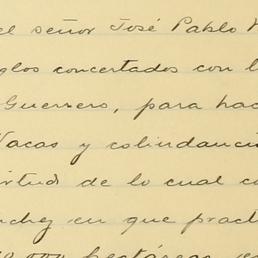 el señor José Pablo
glos concertados con l
Guerrero, para hac
Vacas y colindanci
irtud de lo cual c
nchez en que pract
hectáreas